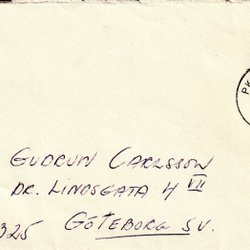 PK
GUDRUN CARLSSON
DR. LINDSGATA 4 VII
325 GÖTEBORG SV.